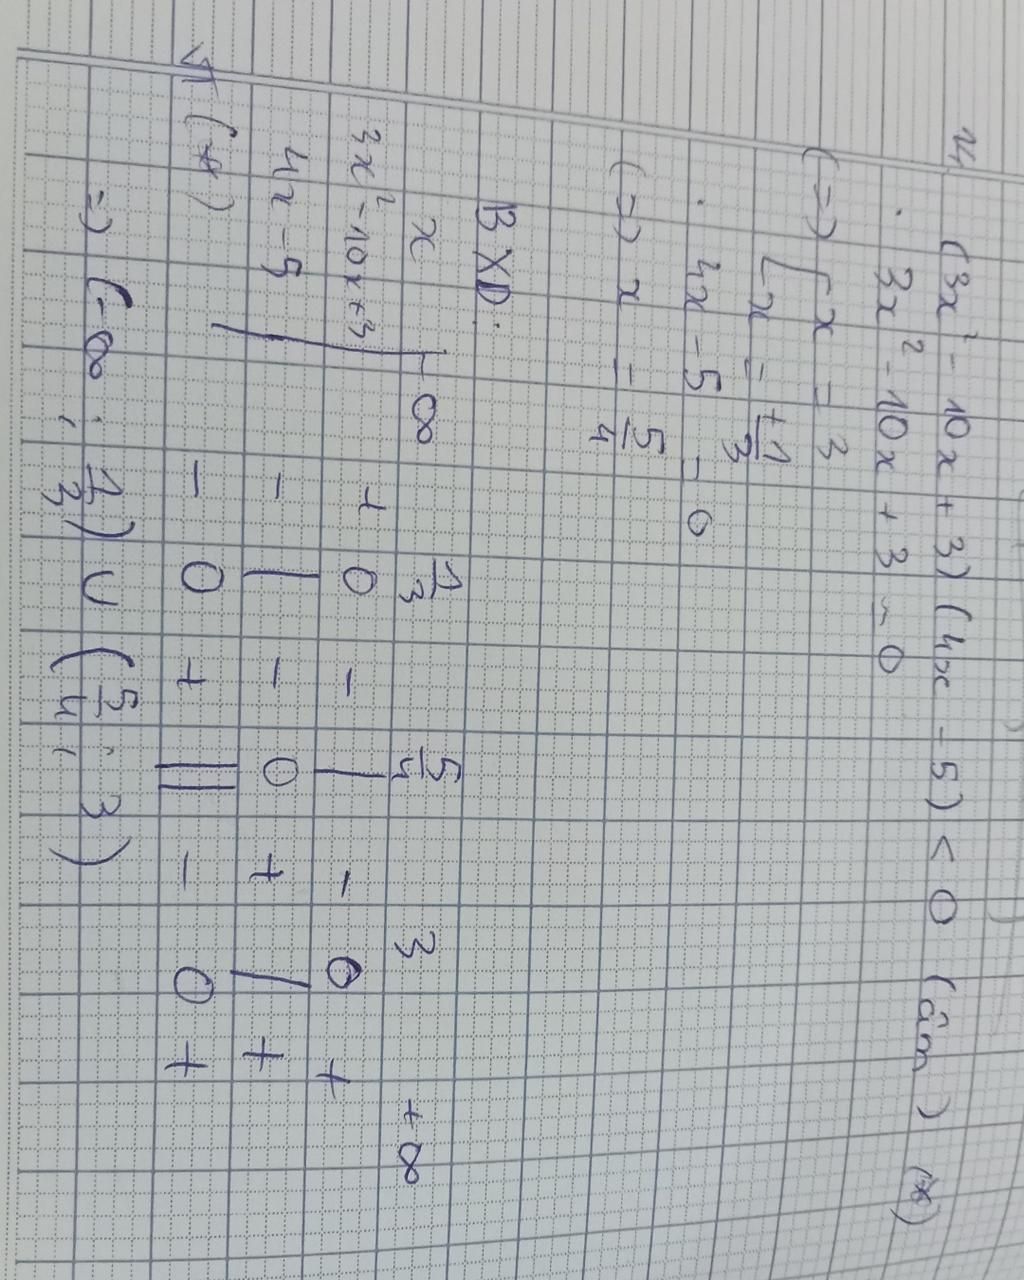 14, (3x² - 10x + 3)(4x - 5) < 0 (âm) (*)
. 3x² - 10x + 3 = 0
(=) [ x = 3
[ x = +1/3
. 4x - 5 = 0
(=) x = 5/4
BXD:
x -∞ 1/3 5/4 3 +∞
3x² - 10x + 3 + 0 - | - 0 +
4x - 5 - | - 0 + | +
VT (*) - 0 + || - 0 +
=) (-∞ ; 1/3) ∪ (5/4 ; 3)